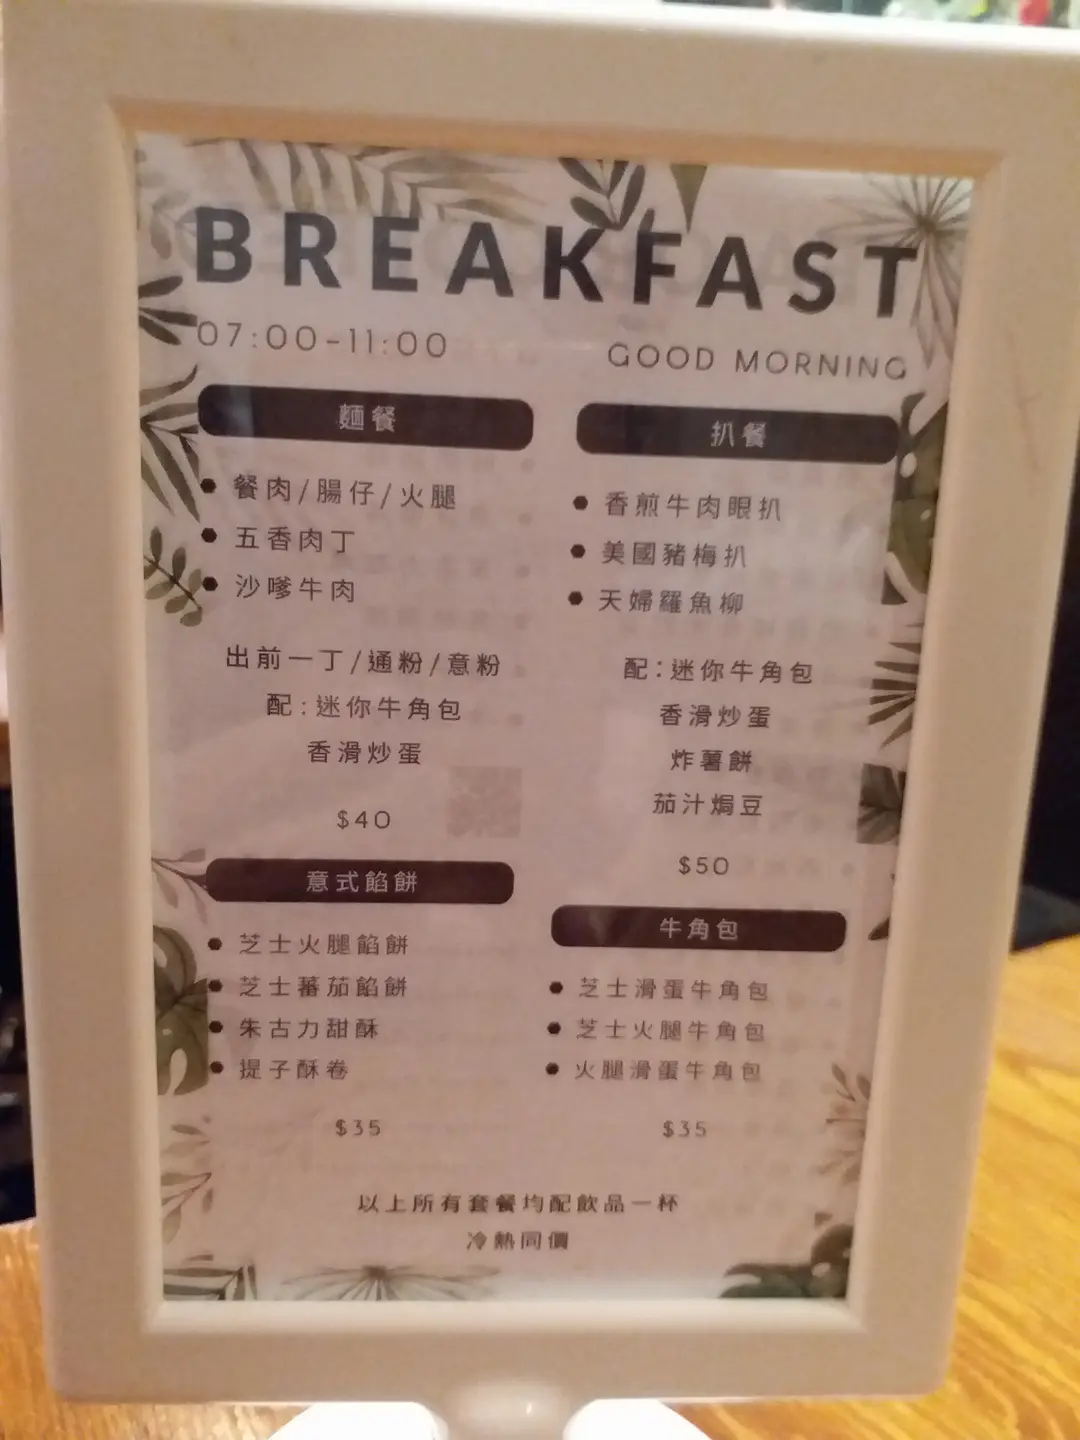 BREAKFAST
07:00-11:00
GOOD MORNING
麵餐
餐肉/腸仔/火腿
五香肉丁
沙嗲牛肉
出前一丁/通粉/意粉
配:迷你牛角包
香滑炒蛋
$40
扒餐
香煎牛肉眼扒
美國豬梅扒
天婦羅魚柳
配:迷你牛角包
香滑炒蛋
炸薯餅
茄汁焗豆
$50
意式餡餅
芝士火腿餡餅
芝士蕃茄餡餅
朱古力甜酥
提子酥卷
$35
牛角包
芝士滑蛋牛角包
芝士火腿牛角包
火腿滑蛋牛角包
$35
以上所有套餐均配飲品一杯
冷熱同價